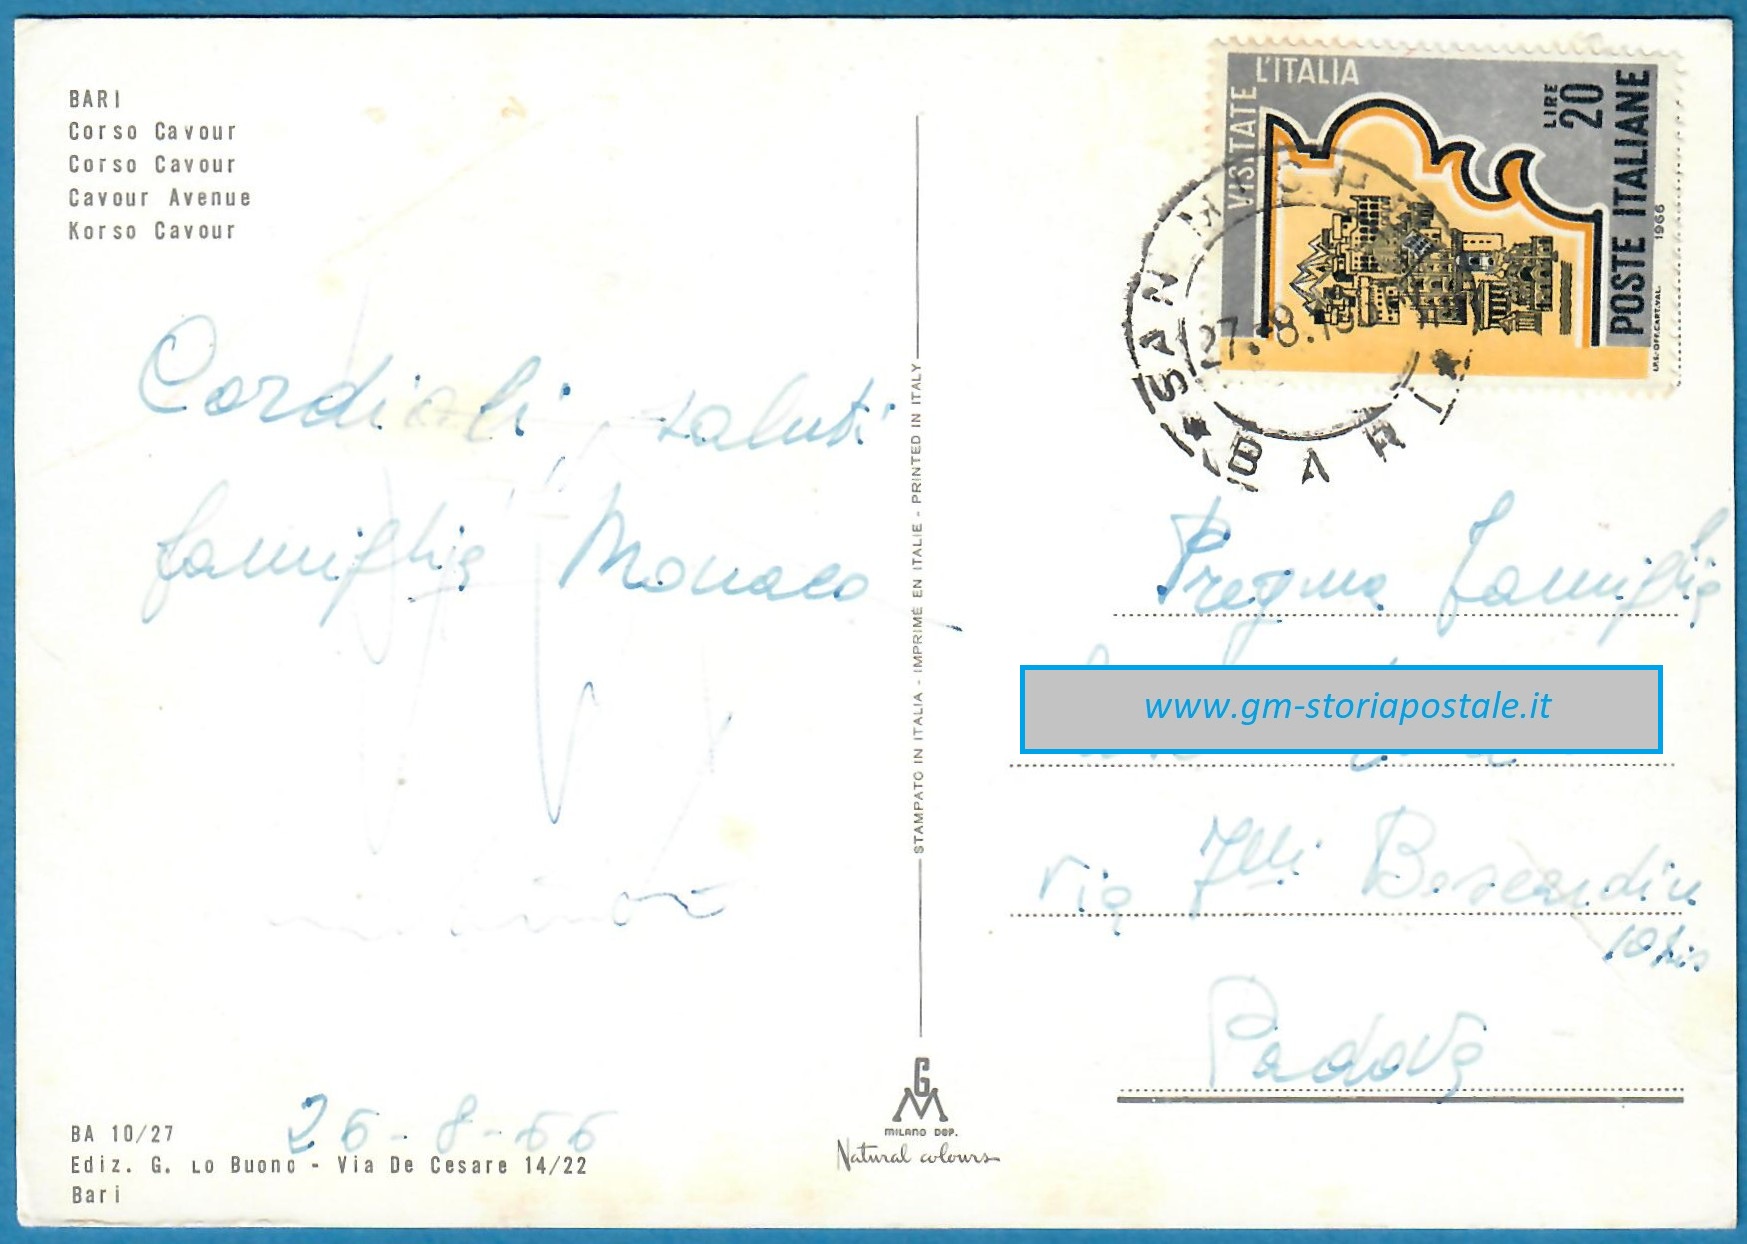 BARI
Corso Cavour
Corso Cavour
Cavour Avenue
Korso Cavour
Cordiali saluti
famiglia Monaco
26-8-66
BA 10/27
Ediz. G. Lo Buono - Via De Cesare 14/22
Bari
STAMPATO IN ITALIA - IMPRIMÉ EN ITALIE - PRINTED IN ITALY
GM
MILANO DEP.
Natural colours
VISITATE L'ITALIA
LIRE 20
POSTE ITALIANE
1966
I.P.S.-OFF.CART.VAL.
SAN
27.8
* BARI *
Pregma famiglia
www.gm-storiapostale.it
Via Flli
10 bis
Padova